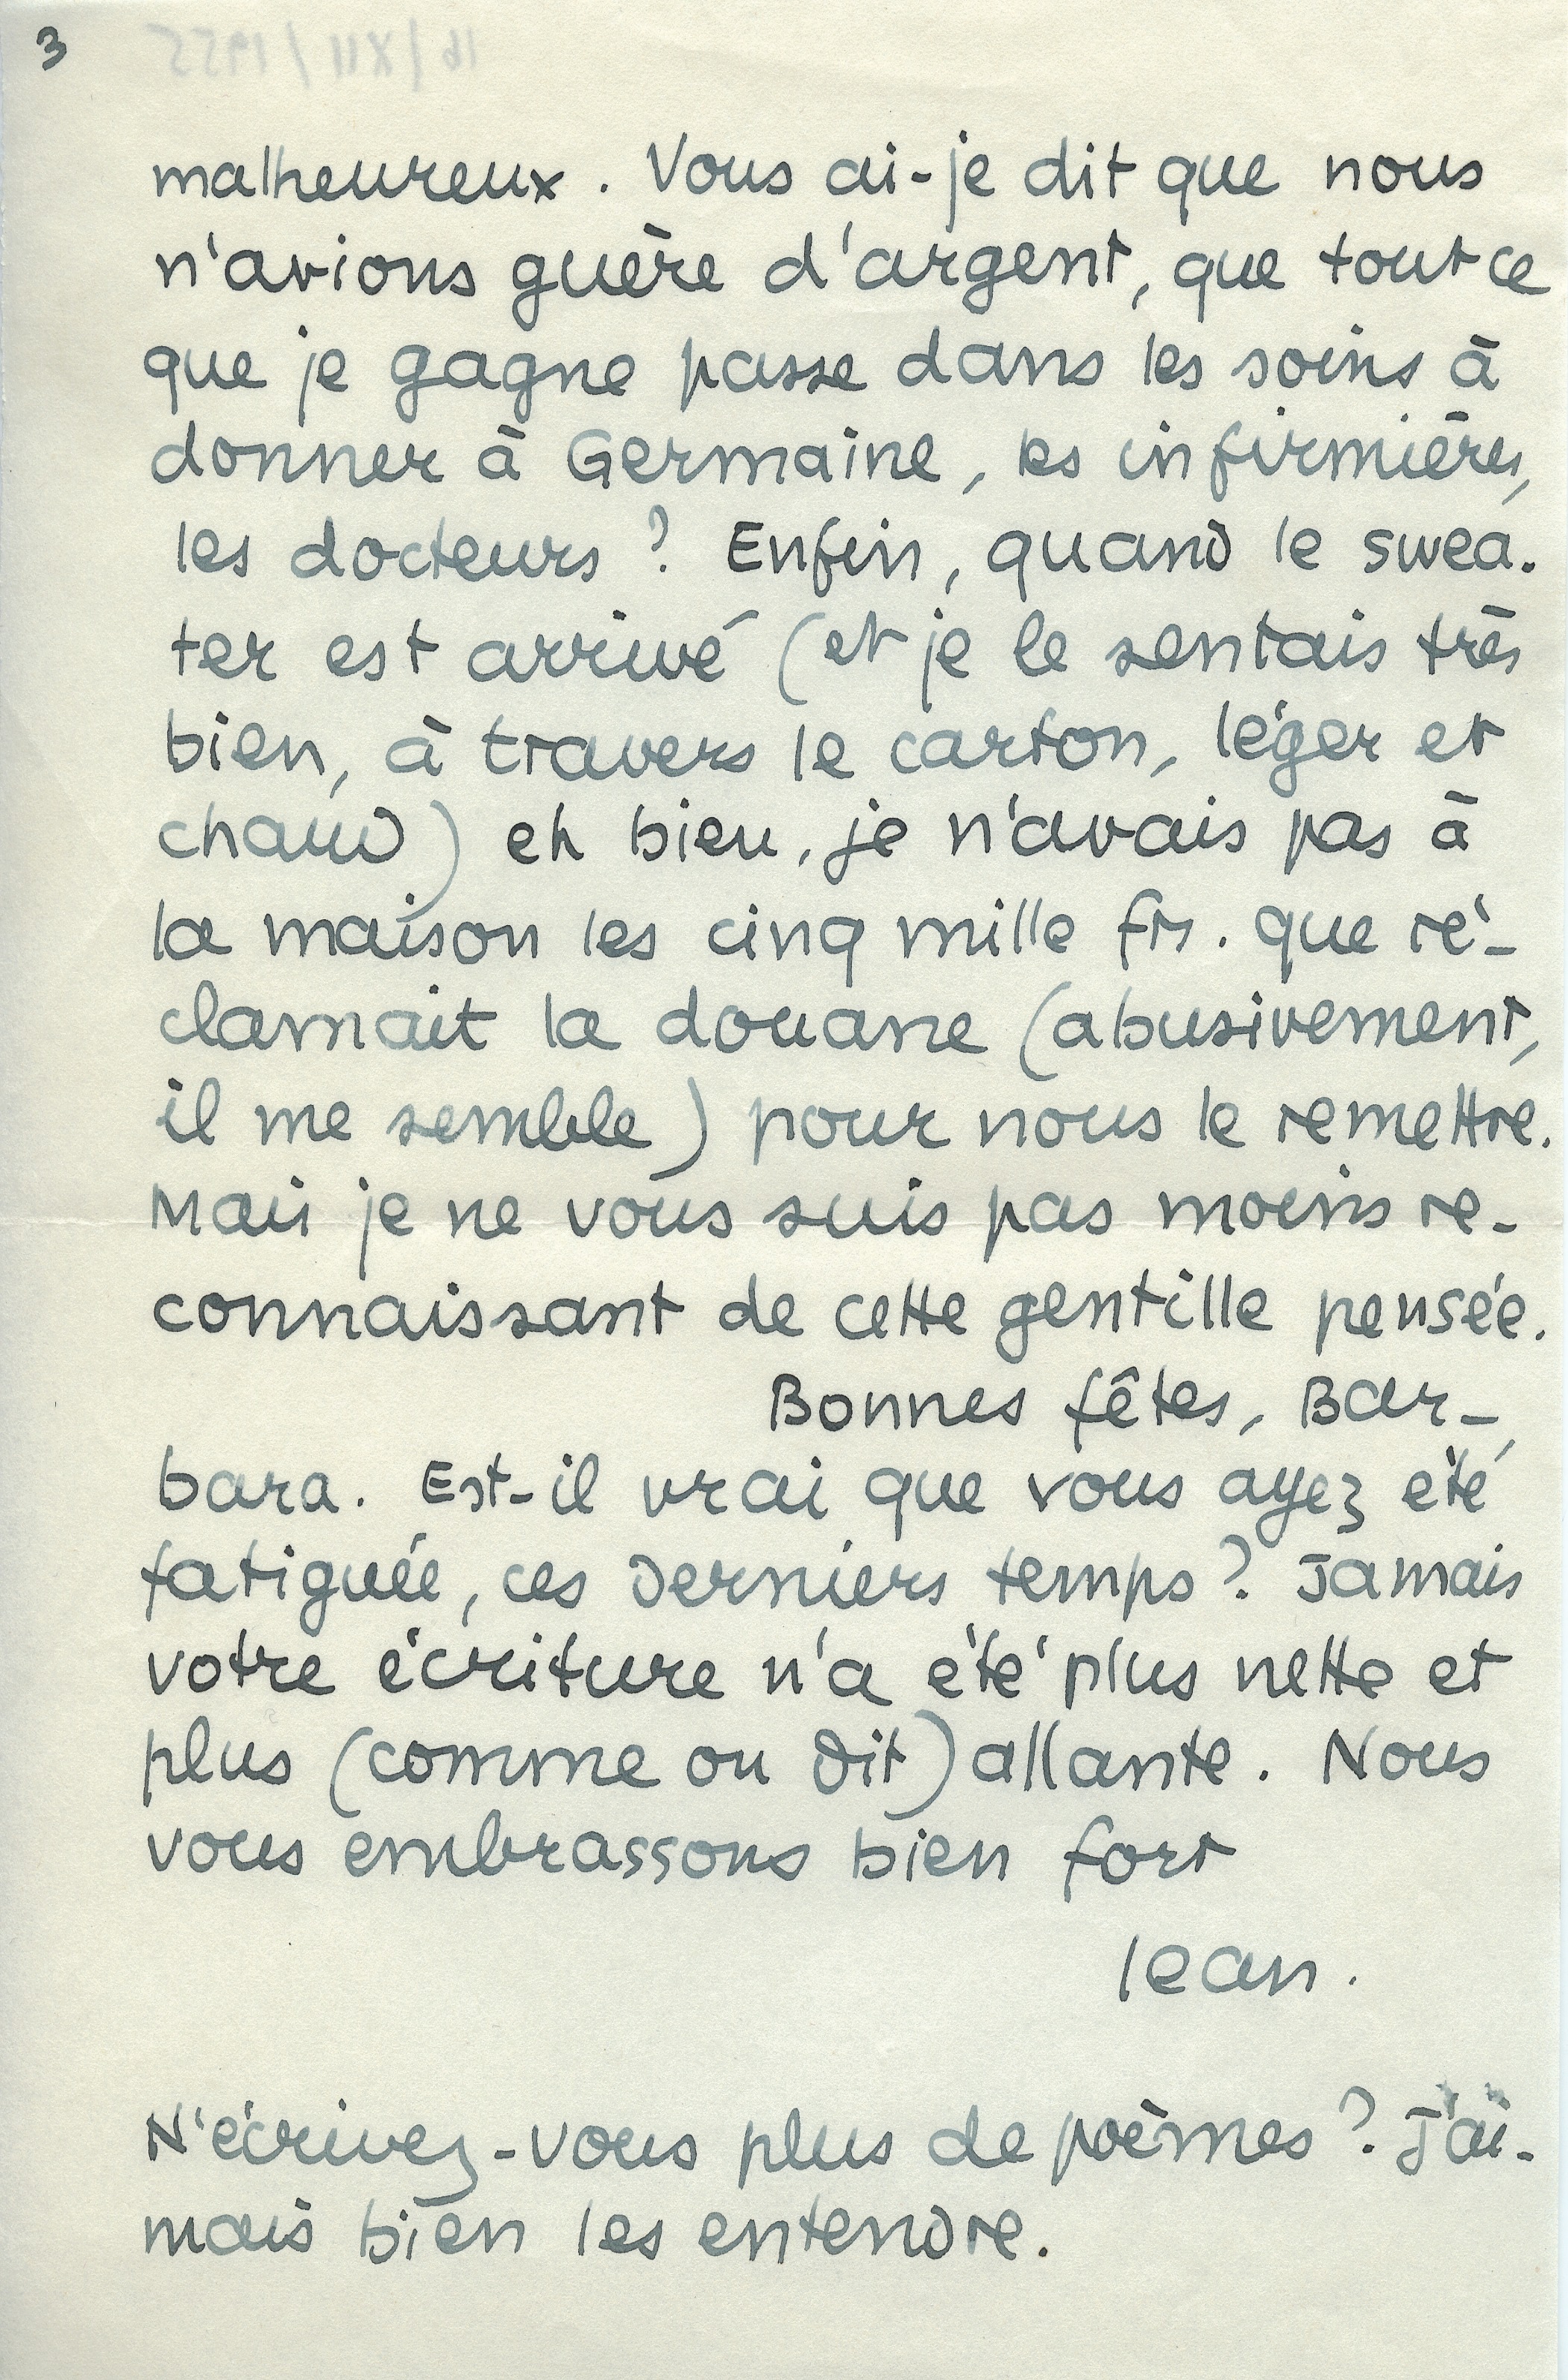 3
16/XII/1955
malheureux. Vous ai-je dit que nous
n'avions guère d'argent, que tout ce
que je gagne passe dans les soins à
donner à Germaine, les infirmières,
les docteurs ? Enfin, quand le swea-
ter est arrivé (et je le sentais très
bien, à travers le carton, léger et
chaud) eh bien, je n'avais pas à
la maison les cinq mille frs. que ré-
clamait la douane (abusivement,
il me semble) pour nous le remettre.
Mais je ne vous suis pas moins re-
connaissant de cette gentille pensée.
Bonnes fêtes, Bar-
bara. Est-il vrai que vous ayez été
fatiguée, ces derniers temps ? Jamais
votre écriture n'a été plus nette et
plus (comme on dit) allante. Nous
vous embrassons bien fort
Jean.
N'écrivez-vous plus de poèmes ? J'ai-
mais bien les entendre.